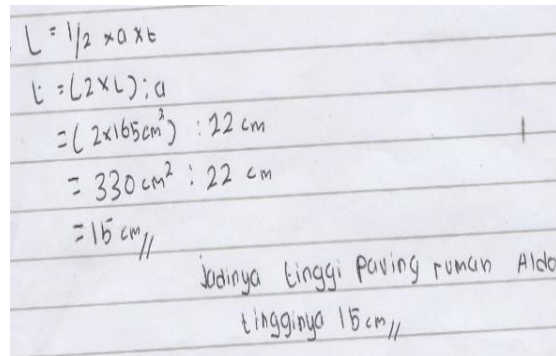 L = 1/2 x a x t
t = (2 x L) : a
= (2x165cm²) : 22 cm
= 330 cm² : 22 cm
= 15 cm //
Jadinya tinggi paving rumah Aldo
tingginya 15 cm //